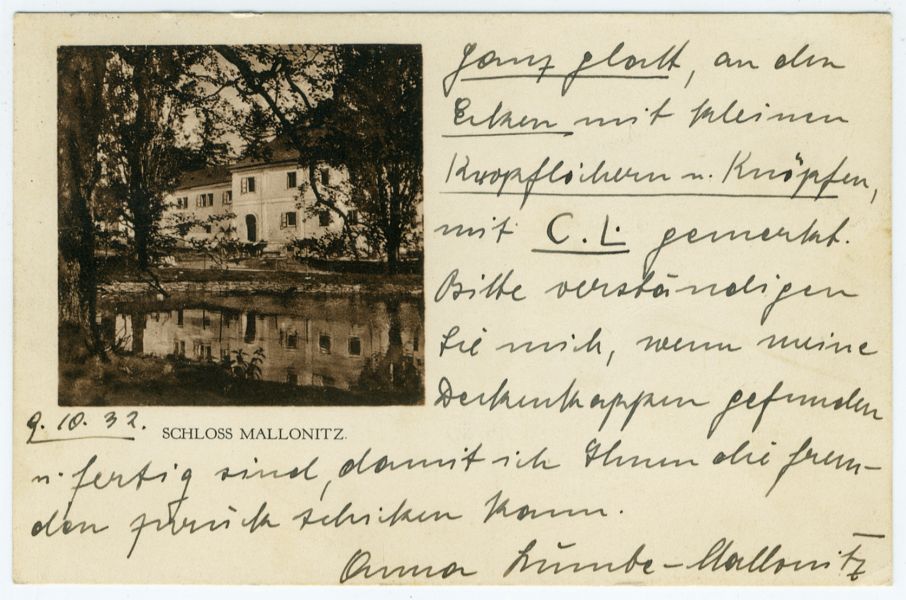 Ganz glatt, an den
Ecken mit kleinen
Knopflöchern u. Knöpfen,
mit C. L. gemerkt.
Bitte verständigen
Sie mich, wenn meine
Deckenkappen gefunden
9. 10. 32.
SCHLOSS MALLONITZ.
u. fertig sind, damit ich Ihnen die frem-
den zurück schicken kann.
Anna -Mallonitz